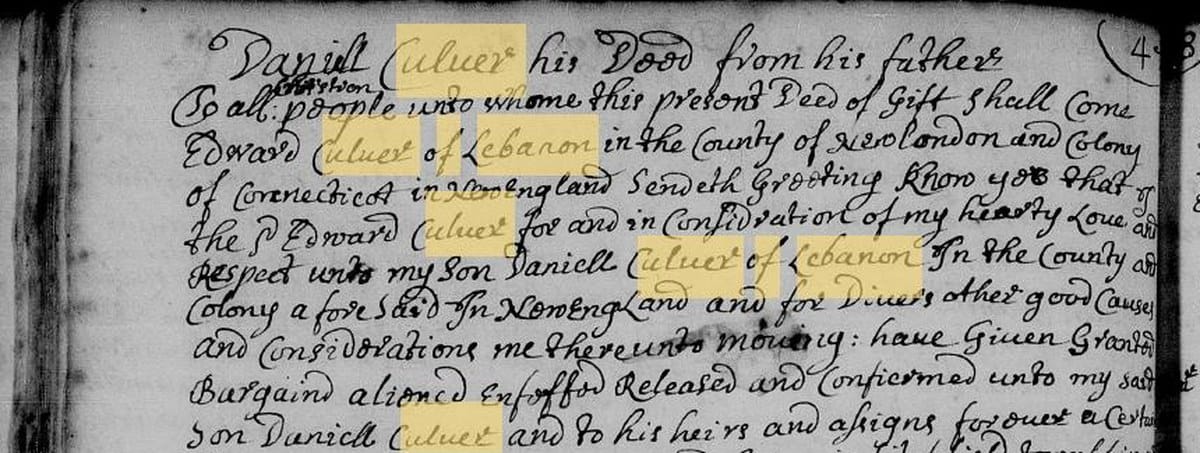 Daniell Culver his Deed from his father
4
Christian
To all: people unto whome this present Deed of Gift Shall Come
Edward Culver of Lebanon in the County of Newlondon and Colony
of Connecticot in NewEngland Sendeth Greeting Know yee that I
the Sd Edward Culver for and in Considration of my hearty Love and
Respect unto my Son Daniell Culver of Lebanon In the County and
Colony afore Said In NewEngland and for Divers other good Causes
and Considerations me thereunto moving: have Given Granted
Bargaind aliened Enfeoffed Released and Confiermed unto my said
Son Daniell Culver and to his heirs and assigns forever a Certain